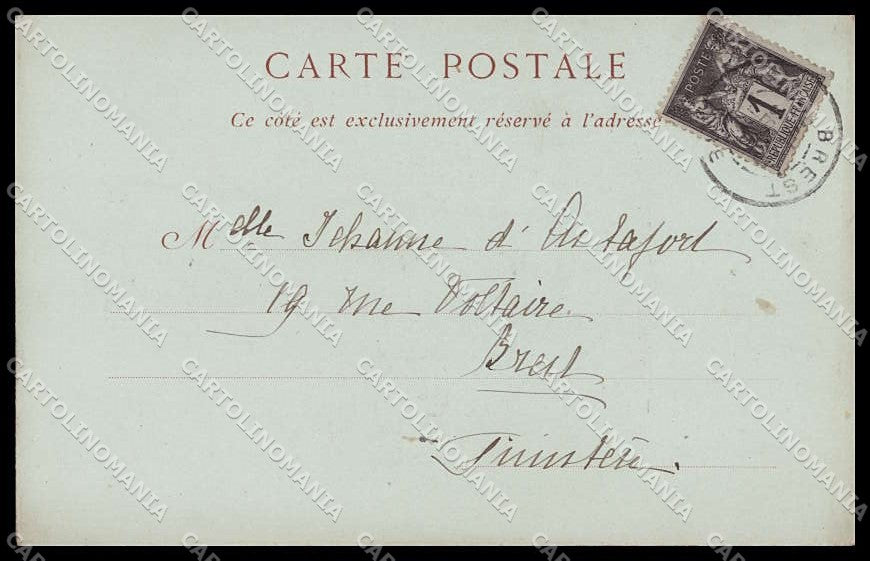 CARTE POSTALE
Ce côté est exclusivement réservé à l'adresse
POSTES
1
REPUBLIQUE FRANÇAISE
BREST
Melle Jehanne d'Astafort
19 rue Voltaire
Brest
Finistère.
CARTOLINOMANIA